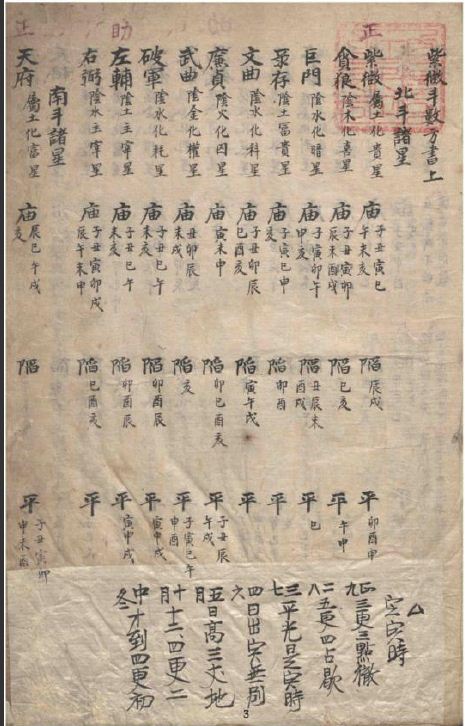 正
助
正
紫微斗数方書上
北斗諸星
紫微屬土化貴星 庙子丑寅巳午未亥 陷辰戌 平卯酉申
貪狼陰木化喜星 庙子丑寅卯辰未酉戌 陷巳亥 平午申
巨門陰水化暗星 庙子寅卯午申亥 陷丑辰未酉戌 平巳
录存陰土富貴星 庙子寅巳申 陷卯酉 平
文曲陰水化科星 庙子丑卯辰巳酉亥 陷寅午戌 平
廉貞陰火化囚星 庙寅未申 陷卯巳酉亥 平子丑辰午戌
武曲陰金化權星 庙丑卯辰未戌 陷亥 平子寅巳午申酉
破軍陰水化耗星 庙子丑巳午未亥 陷卯酉辰 平寅申戌
左輔陰土主宰星 庙子丑巳午未亥 陷卯酉辰 平寅申戌
右弼陰水主宰星 庙子丑寅卯戌辰午未申 陷巳酉亥 平
南斗諸星
天府屬土化富星 庙辰巳午戌亥 陷 平子丑寅卯申未酉
定寅時
正九三更三點徹
二八五更四占歇
三平光是寅時
四六日出寅無別
五月日高三丈地
十月十二四更二
中冬才到四更初
3